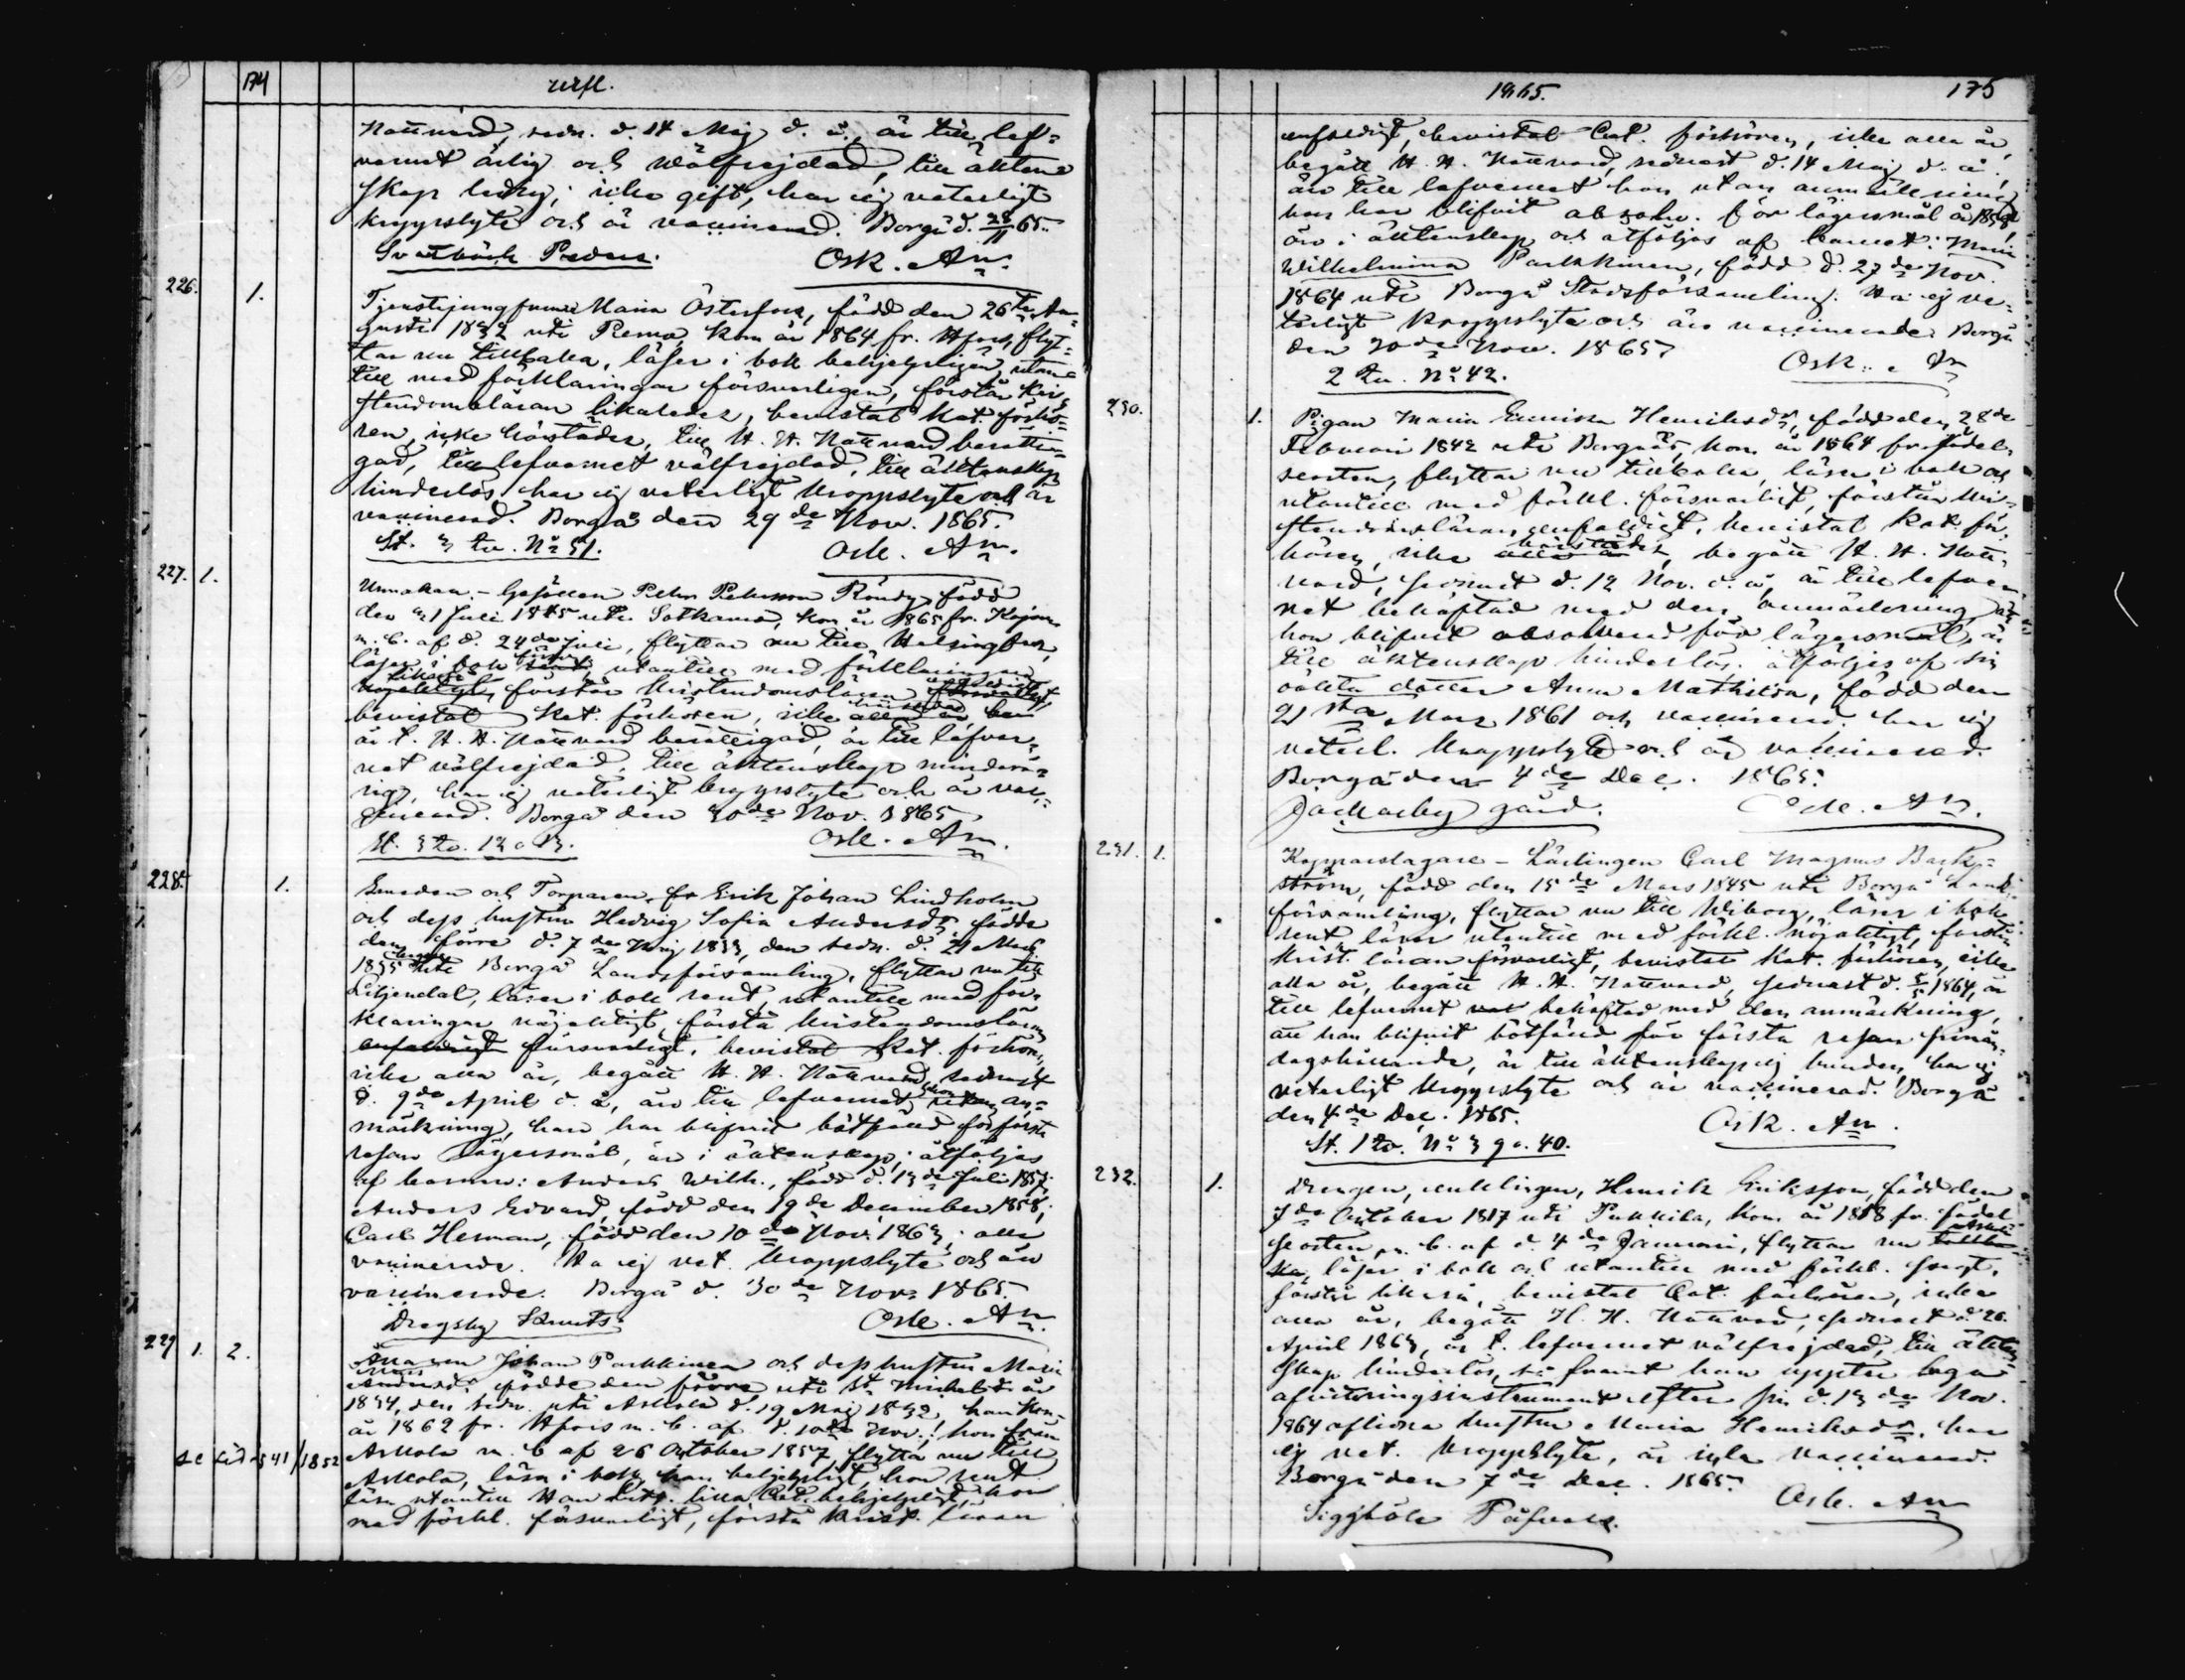 174
utfl.
Nattvard, sedn. d. 14 Maj d. å., är till lef-
vernet ärlig och wälfrejdad, till äkten-
skap ledig; icke gift, har ej veterligt
kroppslyte och är vaccinerad. Borgå d. 28/11 65.
Svartbäck Peders. Osk. Am.
226. 1.
Tjenstejungfrun Maria Österfors, född den 26te Au-
gusti 1832 uti Perno, kom år 1864 fr. Hfors, flyt-
tar nu tillbaka, läser i bok behjelpligen, utan-
till med förklaringar försvarligen, förstår Kri-
stendomsläran likaledes, bevistat Kat. förhö-
ren, icke härstädes, till H. H. Nattvard berätti-
gad, till lefvernet välfrejdad, till äktenskap
hinderlös, har ej veterligt kroppslyte och är
vaccinerad. Borgå den 29de Nov. 1865.
St. 3 tu. No 51. Osk. Am.
227. 1.
Gesällen Petter Petersson Röndy, född
den 1 Juli 1845 uti Sotkamo, kom år 1865 fr. Kajana
m. b. af d. 24de Juli, flyttar nu till Helsingfors,
läser i bok utantill med förklaringar
förstår Kristendomsläran
bevistat Kat. förhören, icke härstädes
är t. H. H. Nattvard berättigad, är till lefver-
net välfrejdad, till äktenskap minderå-
rig, har ej veterligt kroppslyte och är vac-
cinerad. Borgå den 30de Nov. 1865
St. 3 tu. 12 o 13. Osk. Am.
228. 1.
1.
Smeden och Torparen fr Erik Johan Lindholm
och dess hustru Hedvig Sofia Andersdr, födde
den förre d. 7de Maj 1833, den sedn. d. 21 Mars
1835 uti Borgå Landsförsamling, flyttar nu till
Liljendal, läser i bok rent, utantill med för-
klaringar nöjaktigt, förstå kristendomsläran
enfaldigt försvarligt, bevistat Kat. förhören,
icke alla år, begått H. H. Nattvard, sednast
d. 9de April d. å., äro till lefvernet utan an-
märkning, han har blifvit bötfäld för första
resan lägersmål, är i äktenskap; åtföljas
af barnen: Anders Wilh., född d. 13de Juli 1857;
Anders Edvard född den 19de December 1858;
Carl Herman, född den 10de Nov. 1863; alla
vaccinerade. Ha ej vet. kroppslyte och äro
vaccinerade. Borgå d. 30de Nov. 1865.
Dregsby Knuts. Osk. Am.
229 1. 2.
Johan Parkkinen och dess hustru Maria
Andersdr. födde den förre uti St. Michels år
1834, den sedn. uti Askola d. 19 Maj 1832, han kom
år 1862 fr. Hfors m. b. af d. 10de Nov.; hon från
Askola m. b af 26 October 1857, flytta nu till
se sid. 541/1852
Askola, läsa i bok, han behjelpligt, hon rent
läsa utantill Han Luth. lilla Cat. behjelpligt, hon
med förkl. försvarligt, förstå Krist. läran
1865. 175
enfaldigt, bevistat Cat. förhören, icke alla år,
begått H. H. Nattvard, sednast d. 14 Maj d. å.,
äro till lefvernet han utan anmärkning
hon har blifvit absolv. för lägersmål år 1858,
äro i äktenskap och åtföljas af barnet: Maria
Wilhelmina Parkkinen, född d. 27de Nov.
1864 uti Borgå Stadsförsamling. Ha ej ve-
terligt kroppslyte och äro vaccinerade. Borgå
den 30de Nov. 1865
2 tu. No 42. Osk. Am
230. 1.
Pigan Maria Henriksdr, född den 28de
Februari 1842 uti Borgnäs, kom år 1864 fr. födel-
seorten, flyttar nu tillbaka, läser i bok och
utantill med förkl. försvarligt, förstår Kri-
stendomsläran enfaldigt, bevistat Kat. för-
hören, icke härstädes, begått H. H. Natt-
vard, sednast d. 12 Nov. d. å., är till lefver-
net behäftad med den anmärkning, att
hon blifvit absolverad för lägersmål, är
till äktenskap hinderlös; åtföljes af sin
oäkta dotter Anna Mathilda, född den
21sta Mars 1861 och vaccinerad; har ej
veterl. kroppslyte och är vaccinerad.
Borgå den 4de Dec. 1865.
Jackarby gård. Osk. Am.
231. 1.
Kopparslagare - Lärlingen Carl Magnus Back-
ström, född den 15de Mars 1845 uti Borgå Lands-
församling, flyttar nu till Wiborg, läser i bok
rent läser utantill med förkl. nöjaktigt, förstår
Krist. läran försvarligt, bevistat Kat. förhören, icke
alla år, begått H. H. Nattvard, sednast d. 1864, är
till lefvernet behäftad med den anmärkning,
att han blifvit bötfäld för första resan
är till äktenskap ej bunden, har ej
veterligt kroppslyte och är vaccinerad. Borgå
den 4de Dec. 1865.
St. 1 tu. No 39 o. 40. Osk. Am.
232. 1.
Drengen, enklingen, Henrik Eriksson, född den
7de October 1817 uti Pukkila, kom år 1858 fr. födel-
seorten m. b. af d. 4de Januari, flyttar nu
läser i bok och utantill med förkl.
förstår likaså, bevistat Cat. förhören, icke
alla år, begått H. H. Nattvard, sednast d. 26
April 1863, är t. lefvernet välfrejdad, till äkten-
skap hinderlös, så framt han uppter laga
afvittringsinstrument efter sin d. 13de Nov.
1864 aflidna hustru Maria Henriksdr, har
ej vet. kroppslyte, är icke vaccinerad.
Borgå den 7de Dec. 1865.
Siggböle Påfvals. Osk. Am